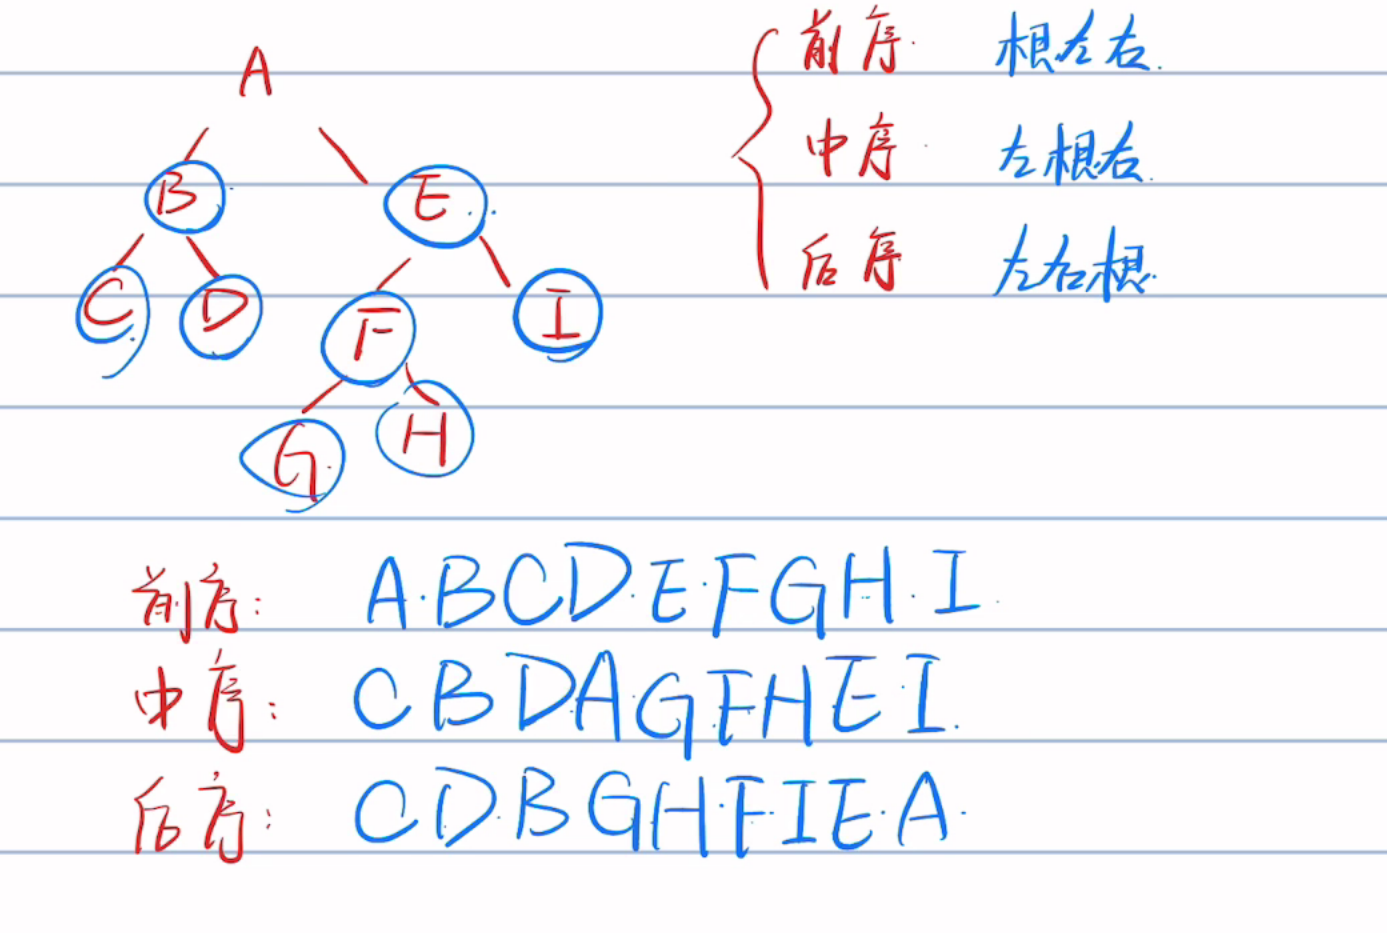 A
B E
C D F I
G H
前序 根左右
中序 左根右
后序 左右根
前序: ABCDEFGHI
中序: CBDAGFHEI
后序: CDBGHFIEA